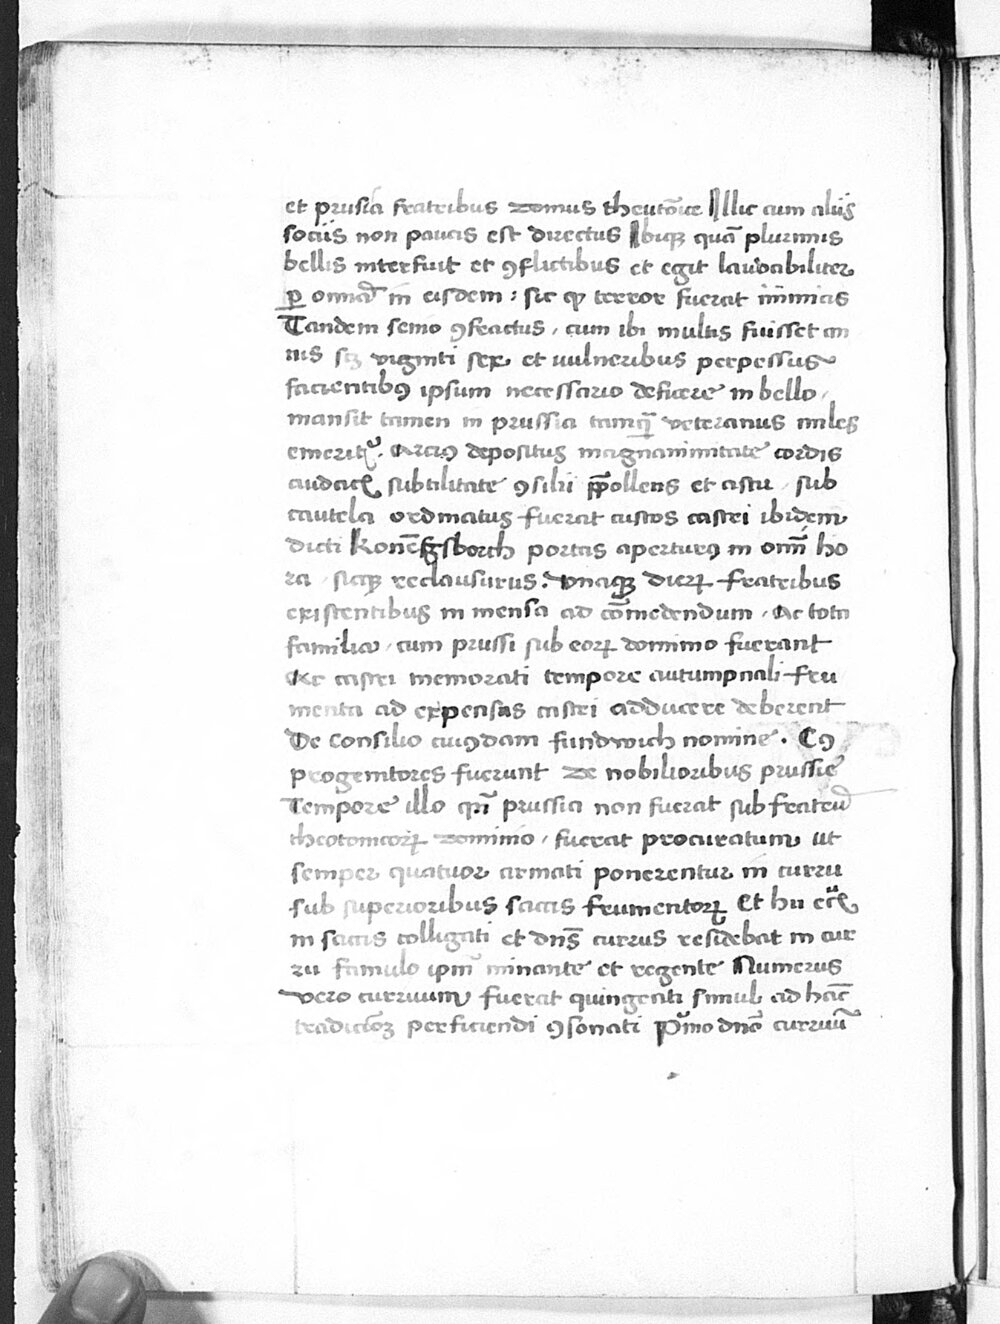 et prusia fratribus domus theutōice Illic cum aliis
sociis non paucis est directus Ibiqꝫ quā plurimis
bellis interfuit et ꝯflictibus et egit laudabiliter
ꝑ omīa in eisdem : sic ꝙ terror fuerat inimicis
Tandem senio ꝯfractus, cum ibi multis fuisset an
nis scꝫ viginti sex et vulneribus perpessus
facientibꝰ ipsum necessario deficere in bello,
mansit tamen in prussia tamqᷓ veteranus miles
emeritꝰ. depositus magnanimitate cordis
audacis subtilitate ꝯsilii p̄pollens et astu, sub
cautela ordinatus fuerat custos castri ibidem
dicti Konēgsborch portas aperturꝰ in omī ho
ra, sicqꝫ reclausurus. Vnaqꝫ dierꝝ fratribus
existentibus in mensa ad cōmedendum, Ac tota
familia, cum prussi sub eorꝝ dominio fuerant
Ac castri memorati tempore autumpnali fru
menta ad expensas castri adducere deberent
De consilio cuiꝰdam fundwich nomine. Cꝰ
progenitores fuerunt de nobilioribus prussie
Tempore illo qn̄ prussia non fuerat sub fratrū
theotonicorꝝ dominio, fuerat procuratum ut
semper quatuor armati ponerentur in curru
sub superioribus saccis frumentorꝝ Et hii
in saccis colligati et dn̄s currus residebat in cur
ru famulo ipm̄ minante et regente Numerus
vero curruum fuerat quingenti simul ad hāc
tradicōeꝫ perficiendi ꝯsonati Pͥmo dn̄o curruū